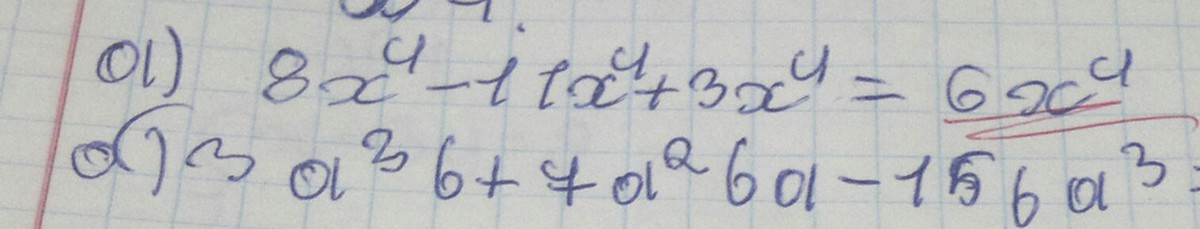 а) 8x⁴ - 11x⁴ + 3x⁴ = 6x⁴
б) 3a³b + 7a²ba - 15ba³ =